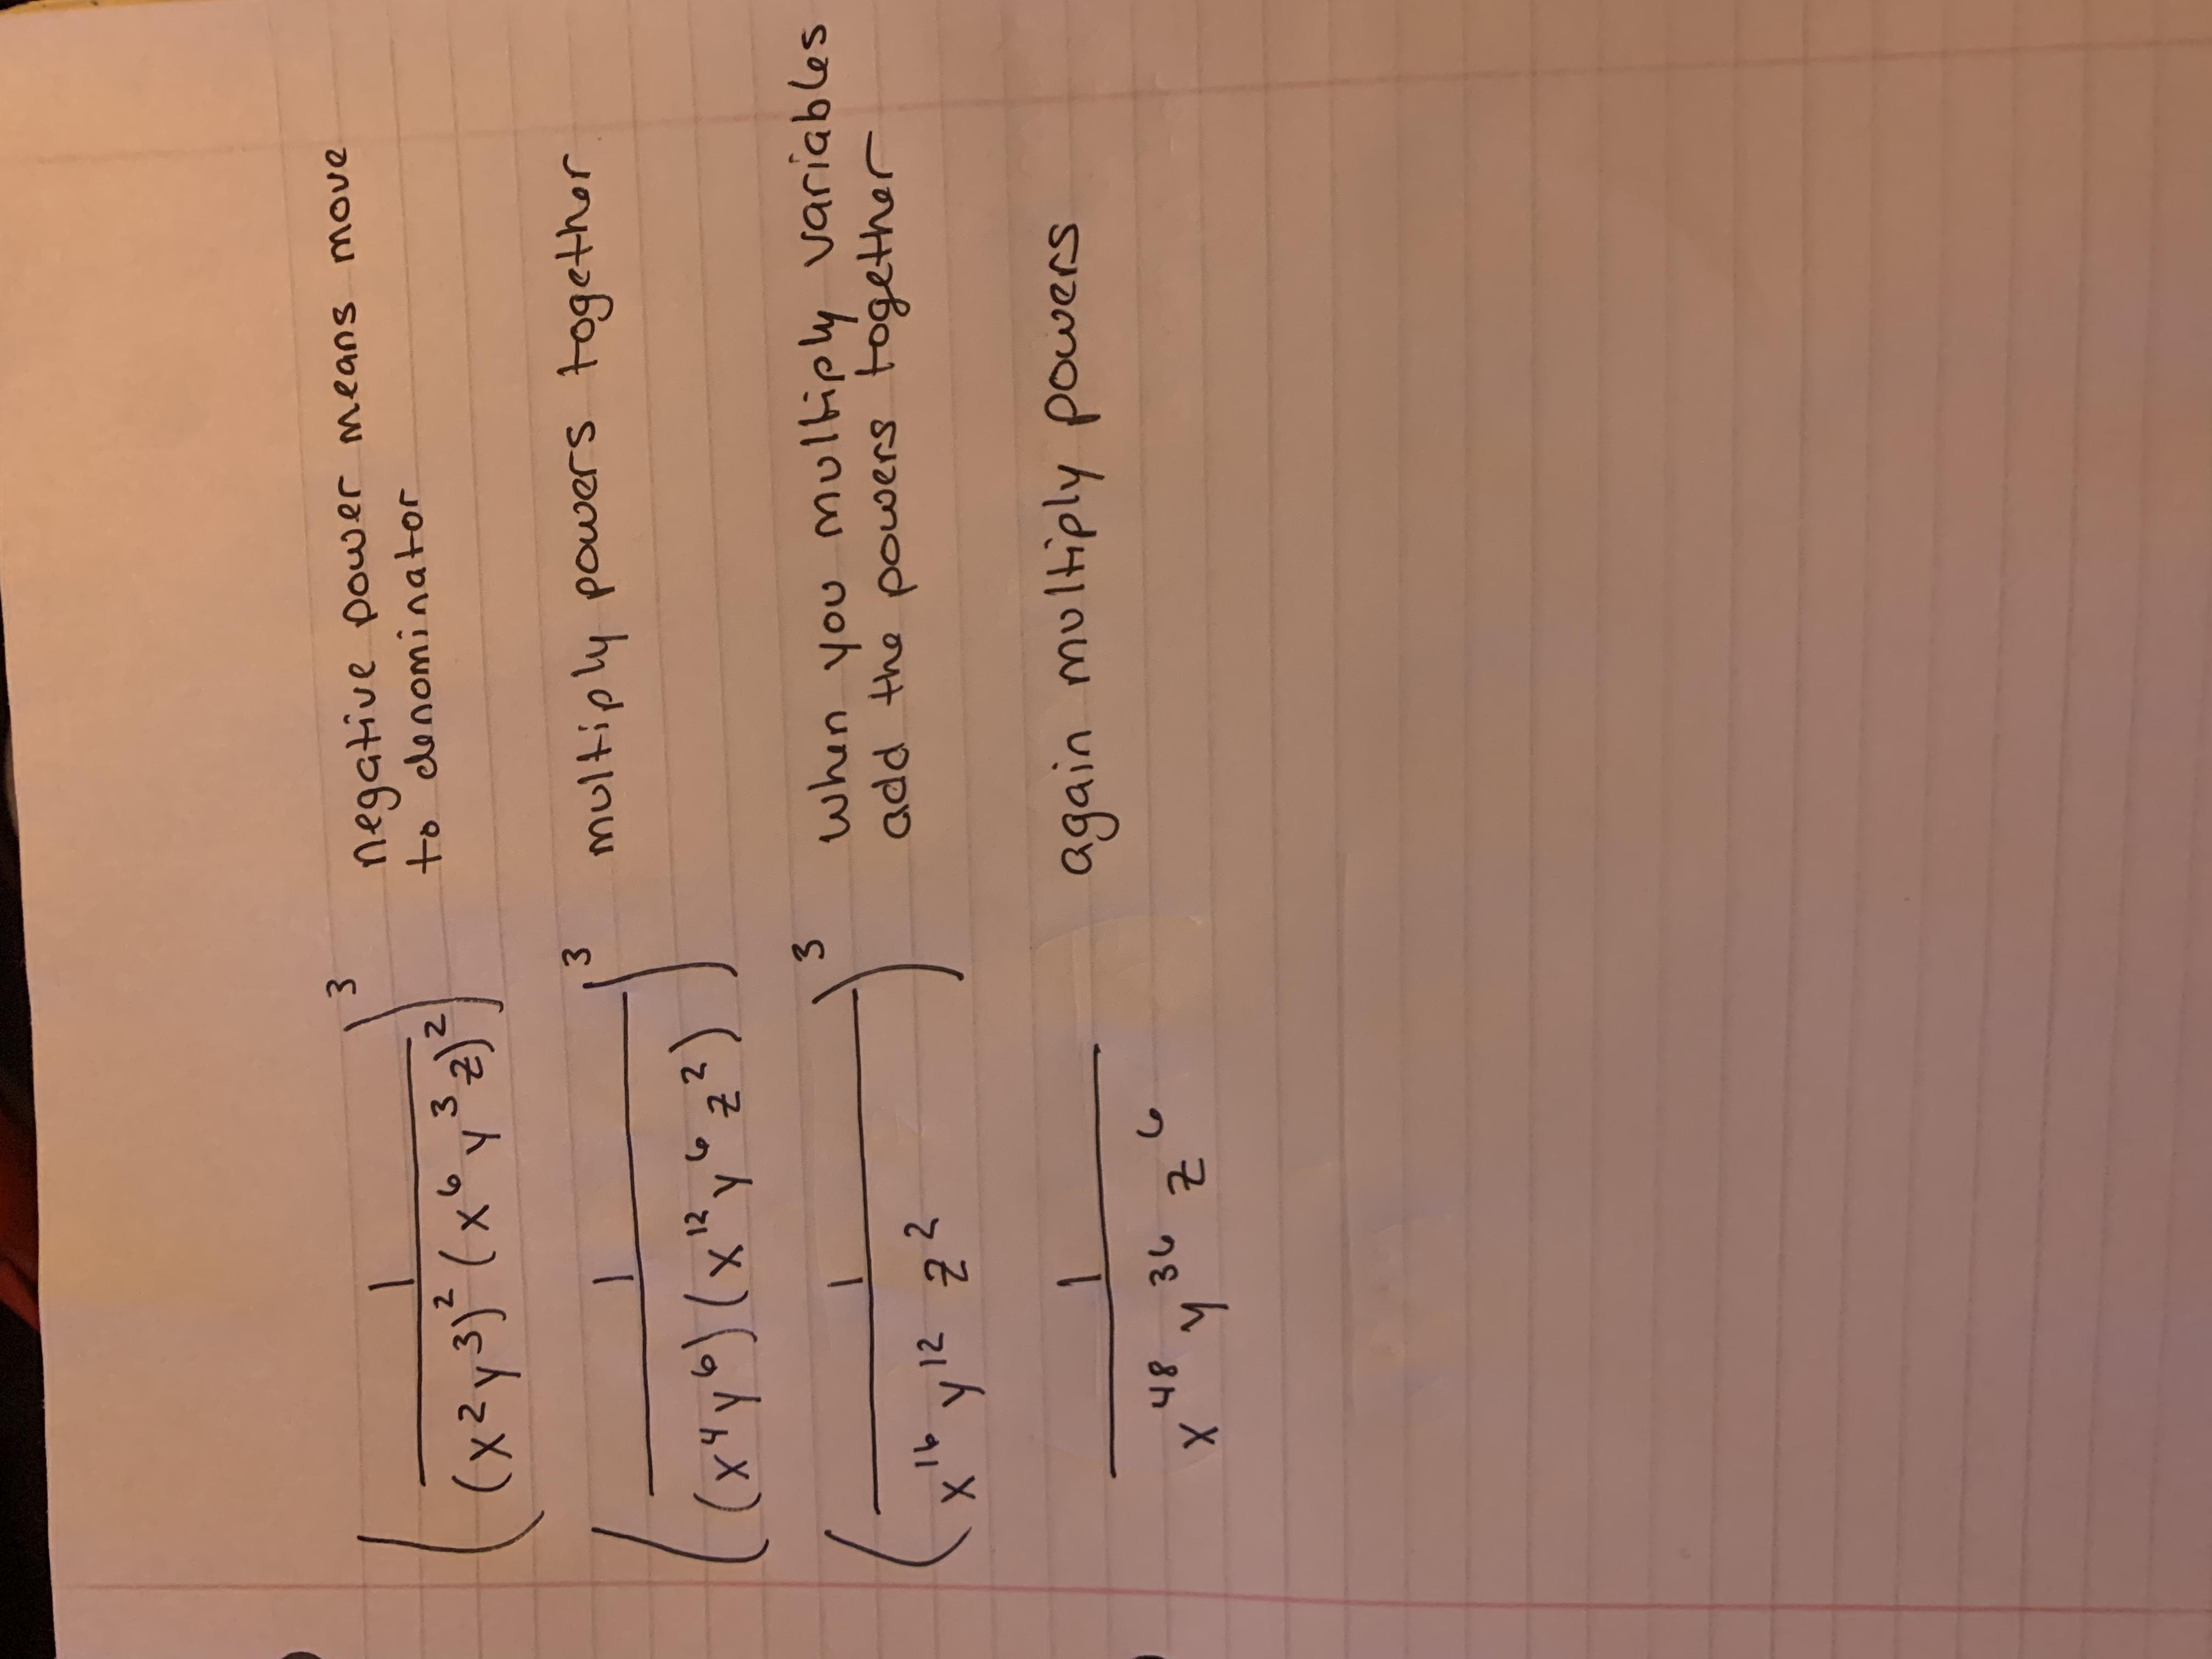 (1/((x²y³)²(x⁶y³z)²))³ negative power means move
to denominator
(1/((x⁴y⁶)(x¹²y⁶z²)))³ multiply powers together
(1/(x¹⁶y¹²z²))³ when you multiply variables
add the powers together
1/(x⁴⁸y³⁶z⁶) again multiply powers